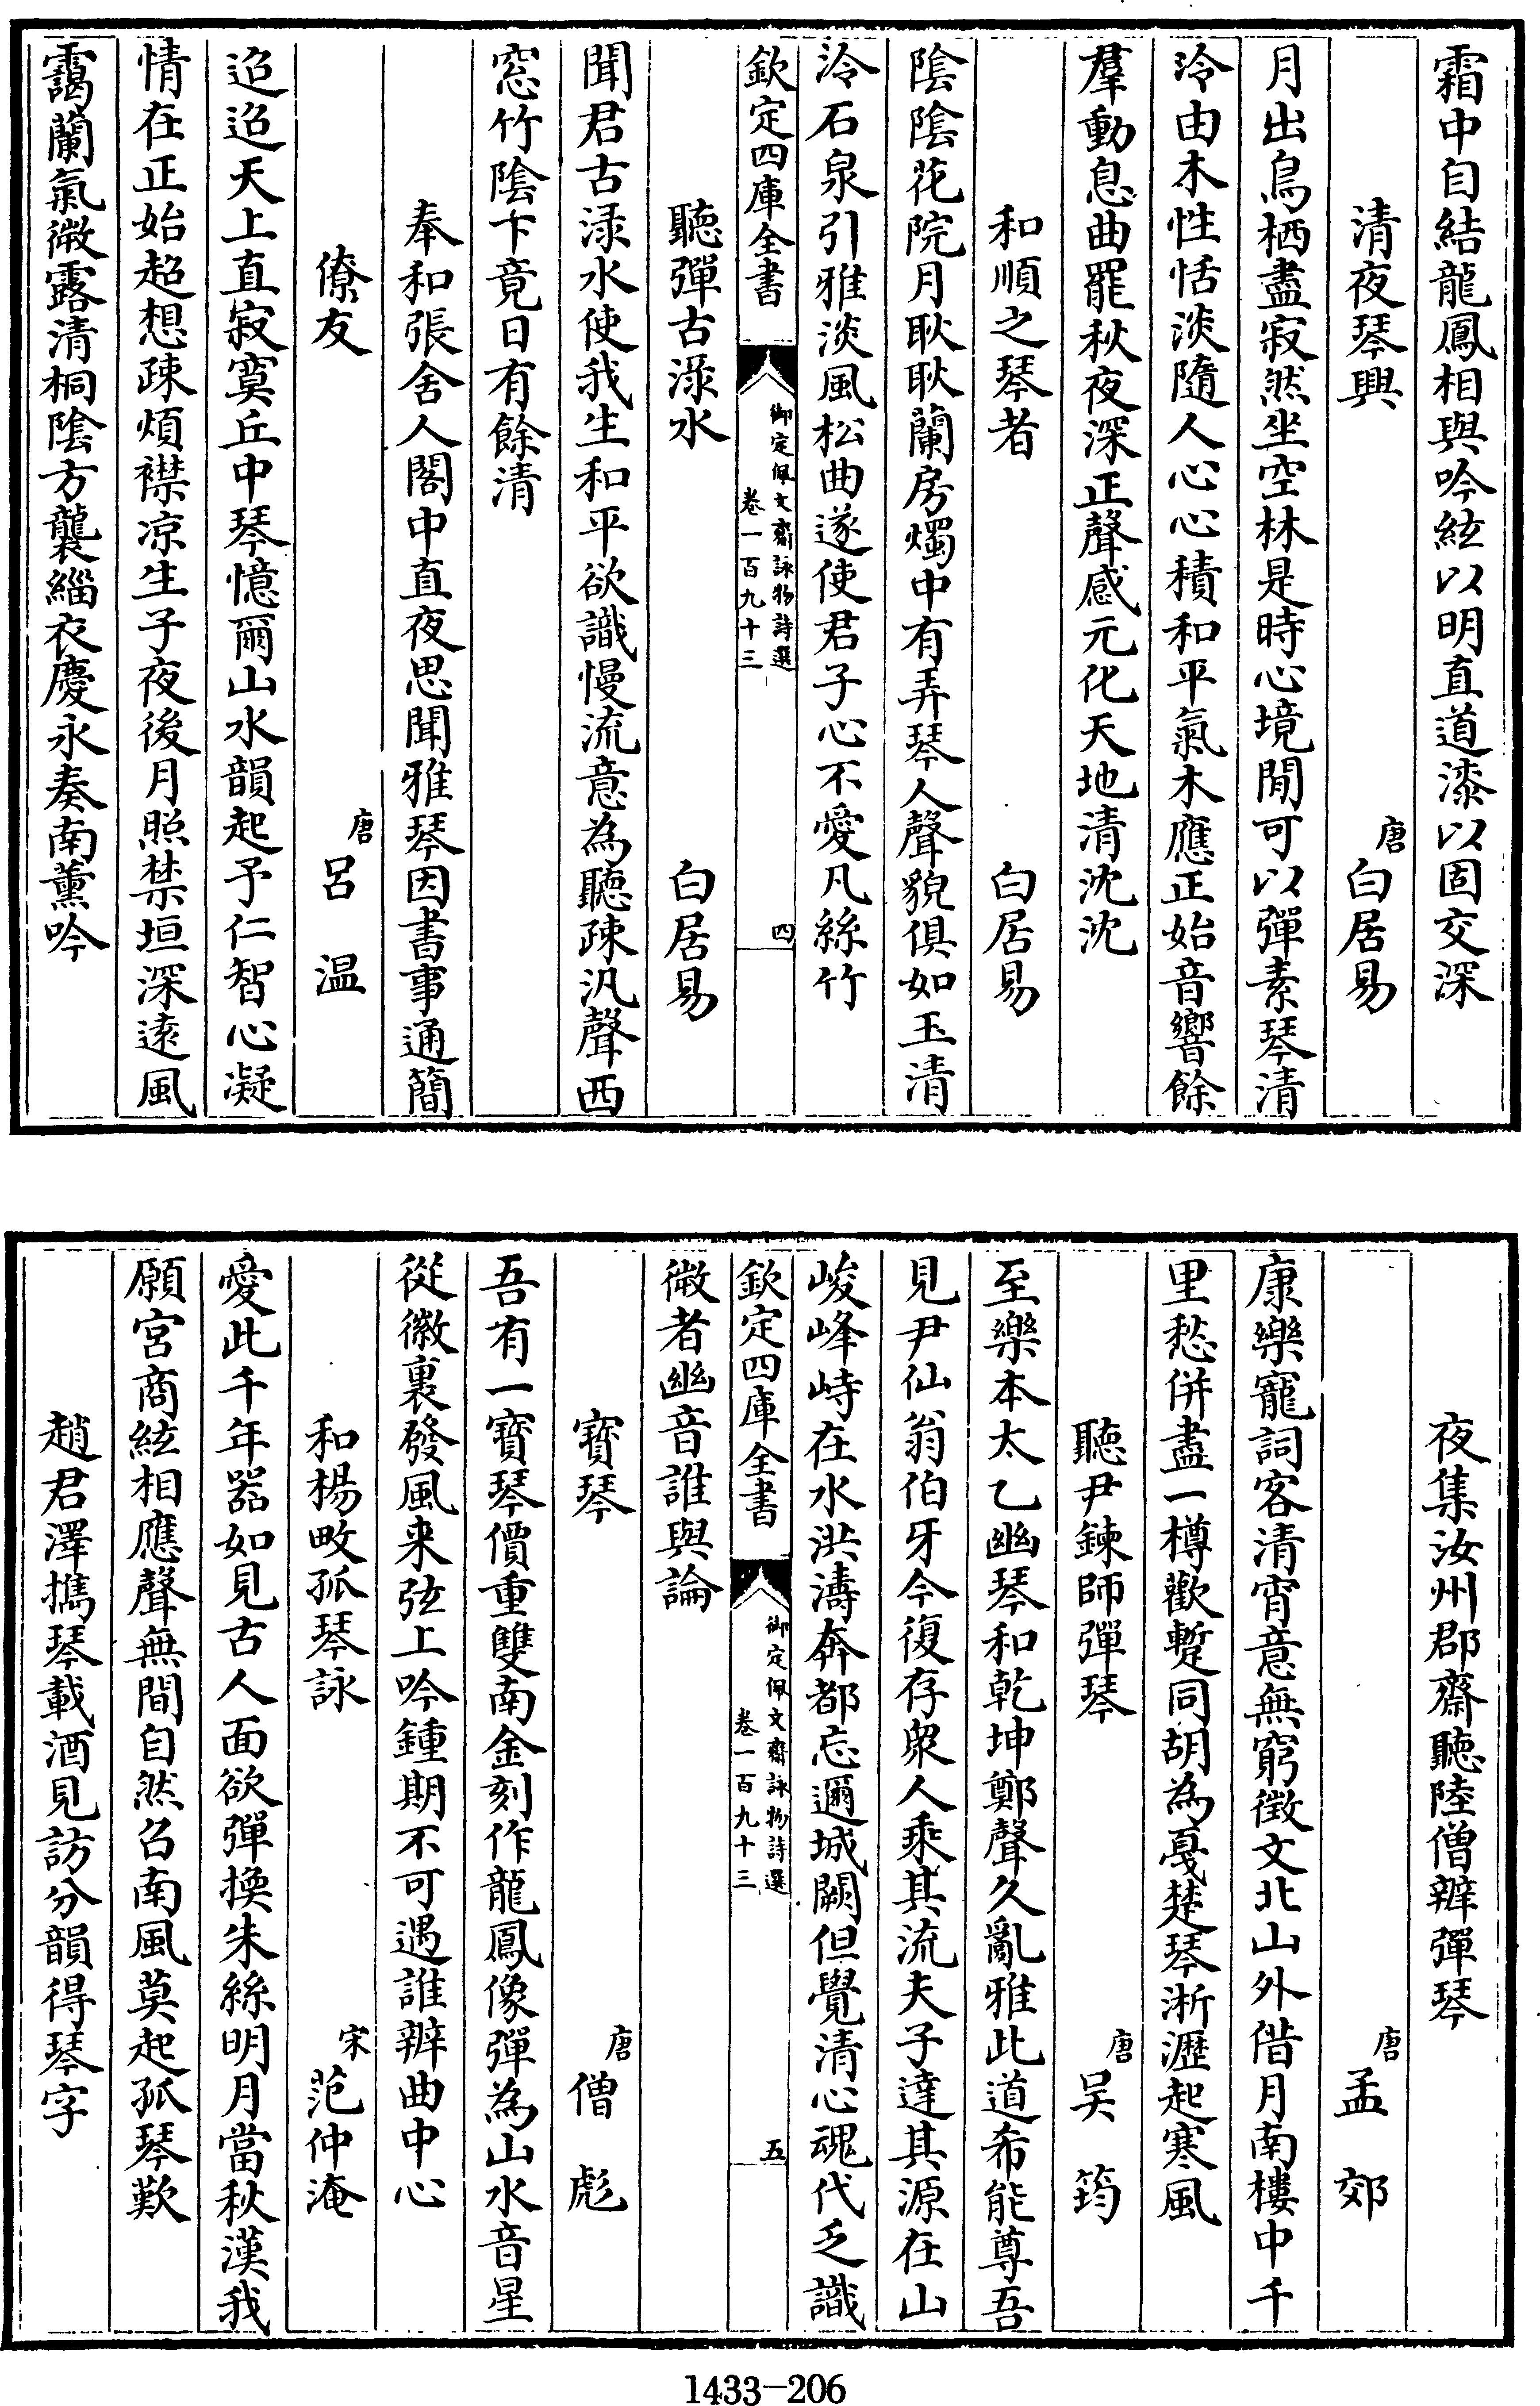 霜中自結龍鳳相與吟絃以明直道漆以固交深
清夜琴興 唐 白居易
月出鳥栖盡寂然坐空林是時心境閒可以彈素琴清
泠由木性恬淡隨人心心積和平氣木應正始音響餘
羣動息曲罷秋夜深正聲感元化天地清沈沈
和順之琴者 白居易
陰陰花院月耿耿蘭房燭中有弄琴人聲貌俱如玉清
泠石泉引雅淡風松曲遂使君子心不愛凡絲竹
欽定四庫全書 御定佩文齋詠物詩選 卷一百九十三 四
聽彈古淥水 白居易
聞君古淥水使我生和平欲識慢流意為聽疎汎聲西
窓竹陰下竟日有餘清
奉和張舍人閣中直夜思聞雅琴因書事通簡
僚友 唐 呂溫
迢迢天上直寂寞丘中琴憶爾山水韻起予仁智心凝
情在正始超想疎煩襟凉生子夜後月照禁垣深遠風
靄蘭氣微露清桐陰方襲緇衣慶永奏南薰吟
夜集汝州郡齋聽陸僧辯彈琴
唐 孟郊
康樂寵詞客清宵意無窮徴文北山外借月南樓中千
里愁併盡一樽歡蹔同胡為戛楚琴淅瀝起寒風
聽尹鍊師彈琴 唐 吳筠
至樂本太乙幽琴和乾坤鄭聲久亂雅此道希能尊吾
見尹仙翁伯牙今復存衆人乘其流夫子達其源在山
峻峰峙在水洪濤奔都忘邇城闕但覺清心魂代乏識
欽定四庫全書 御定佩文齋詠物詩選 卷一百九十三 五
微者幽音誰與論
寶琴 唐 僧彪
吾有一寶琴價重雙南金刻作龍鳳像彈為山水音星
從徽裏發風来弦上吟鍾期不可遇誰辨曲中心
和楊畋孤琴詠 宋 范仲淹
愛此千年器如見古人面欲彈換朱絲明月當秋漢我
願宮商絃相應聲無間自然召南風莫起孤琴歎
趙君澤攜琴載酒見訪分韻得琴字
1433-206